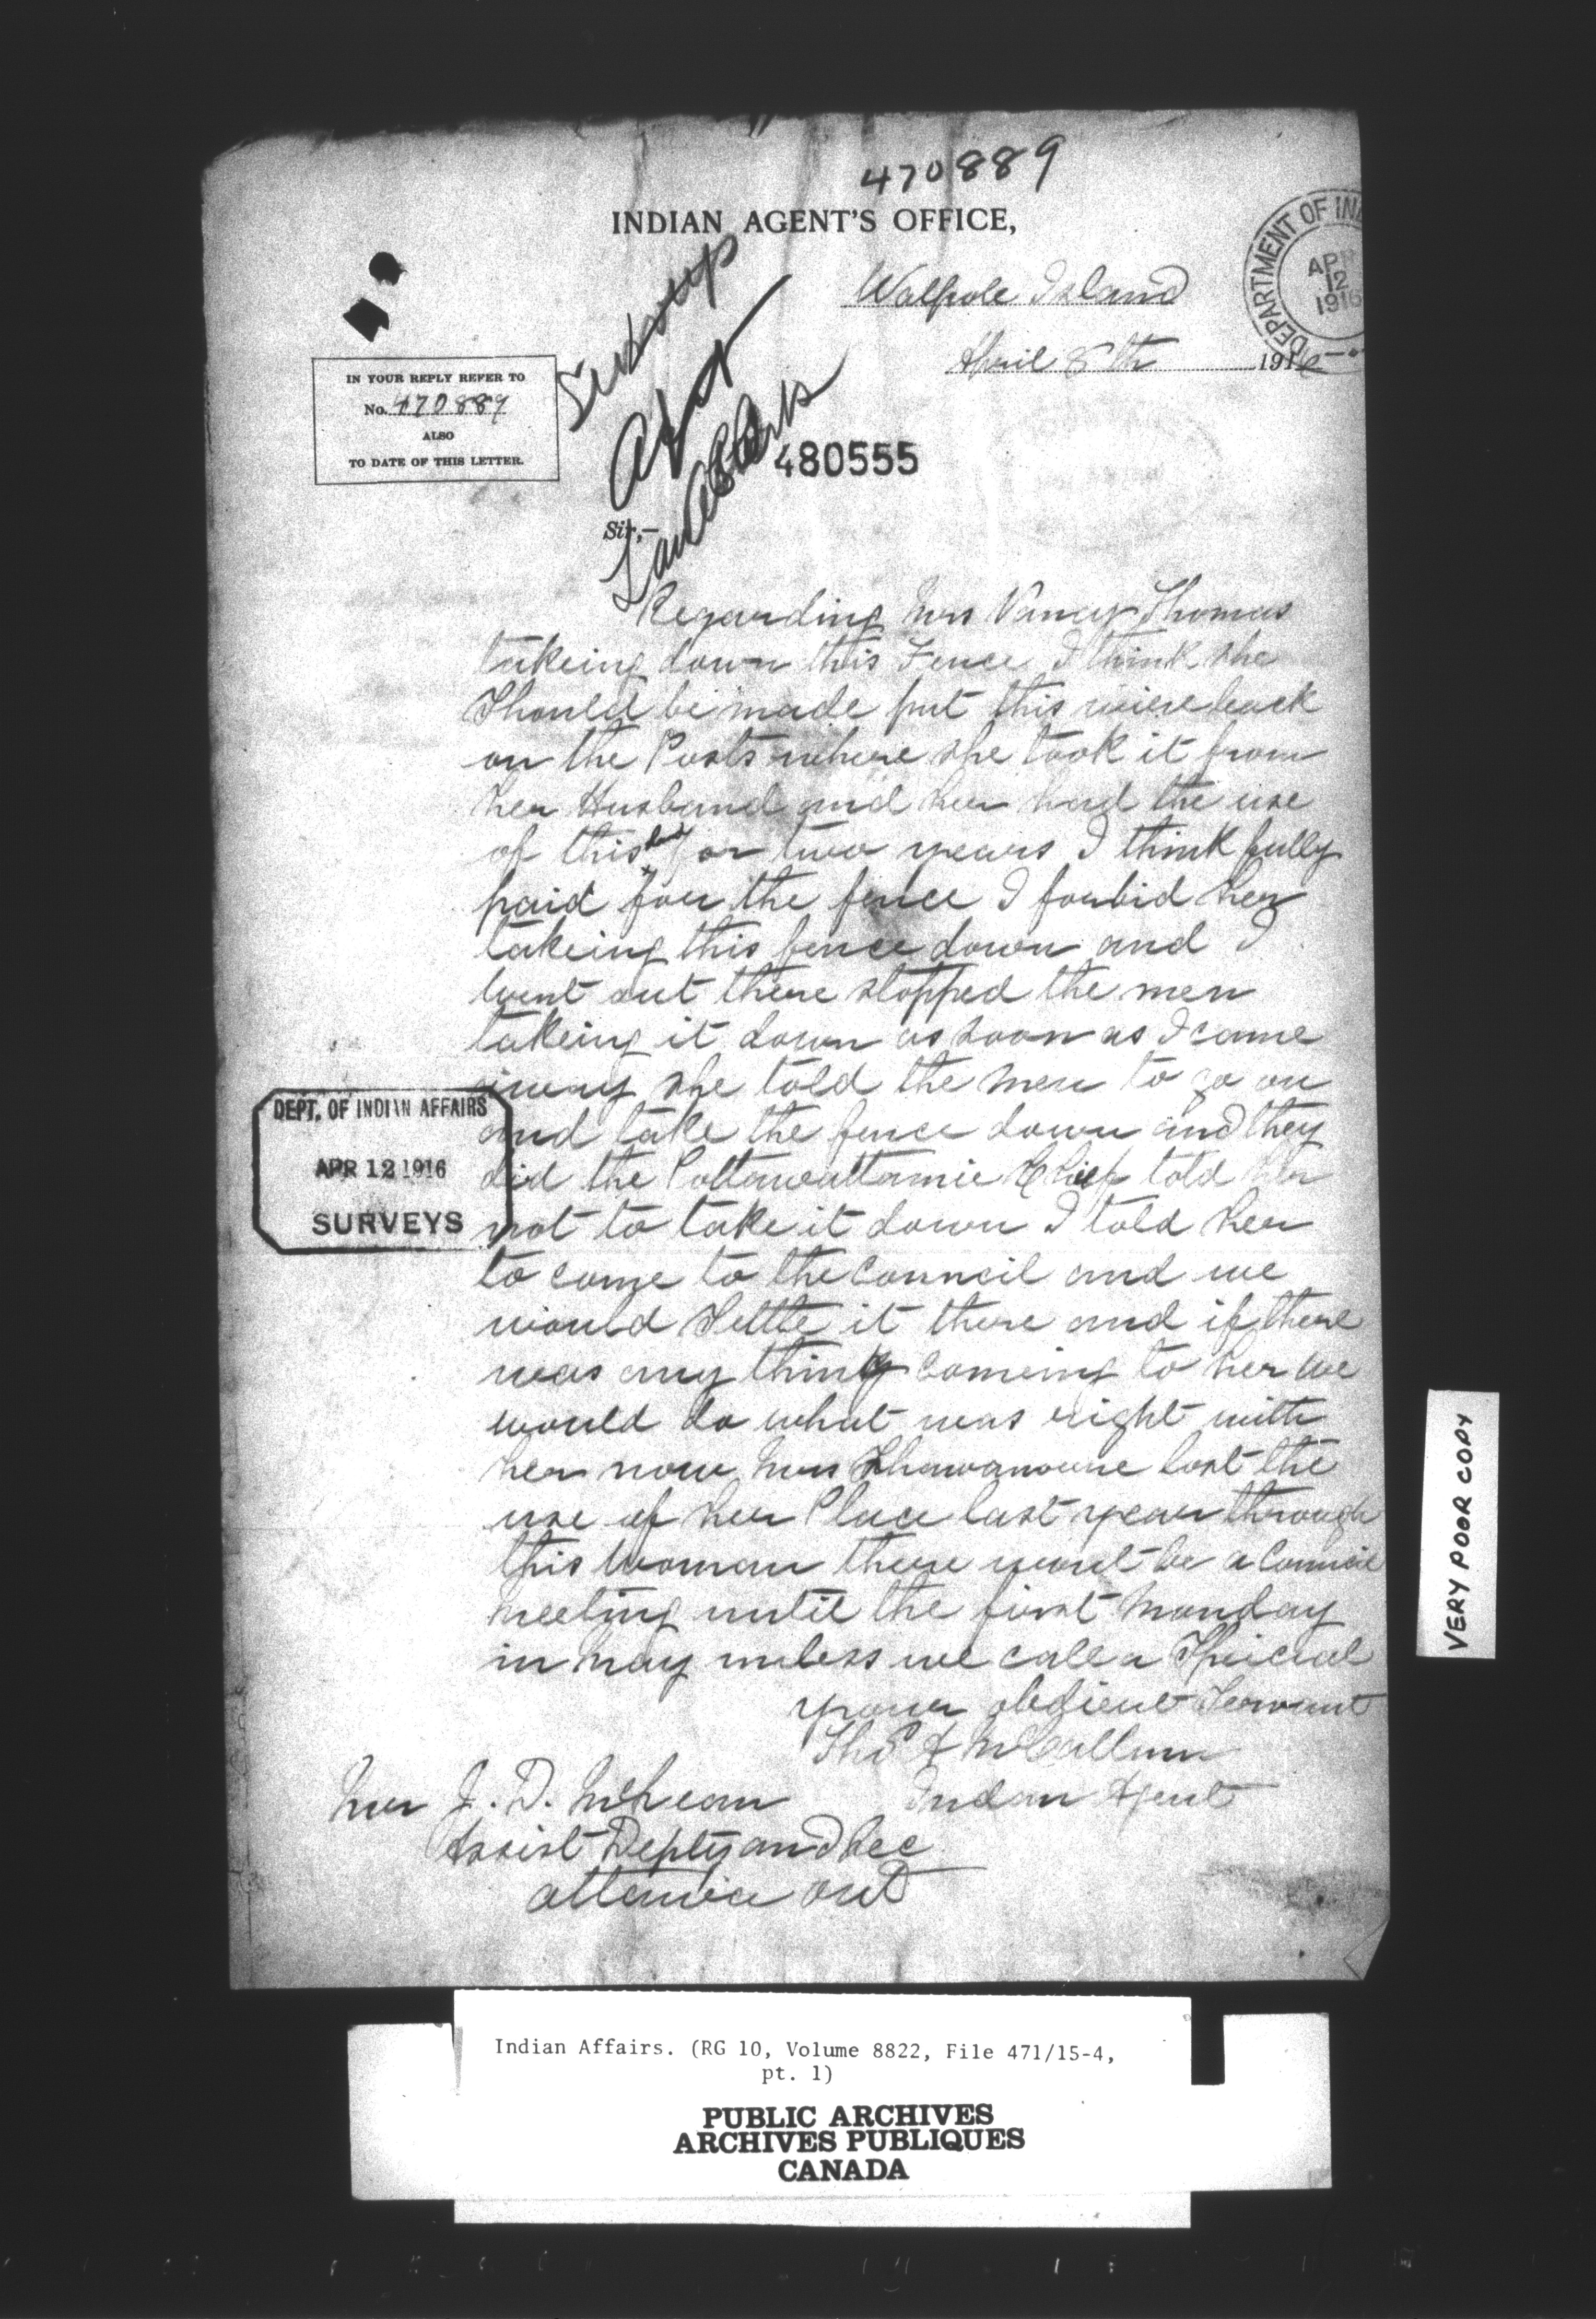 470889
INDIAN AGENT'S OFFICE,
Walpole Island
April 8th 1916
DEPARTMENT OF IND
APR
12
1916
IN YOUR REPLY REFER TO
No. 470889
ALSO
TO DATE OF THIS LETTER.
480555
Sir,—
Regarding Mrs Nancy Thomas
takeing down this Fence I think she
Should be made put this wiere back
on the Posts where she took it from
her Husband and her had the use
of this for two years I think fully
paid for the fence I forbid her
takeing this fence down and I
went out there stopped the men
takeing it down as soon as I came
away she told the men to go on
and take the fence down and they
did the Pottawattamie Chief told her
not to take it down I told her
to come to the Council and we
would Settle it there and if there
was any thing comeing to her we
would do what was right with
her now Mrs lost the
use of her Place last year through
this woman there wont be a Council
meeting until the first Monday
in May unless we call a Spicial
your obdient Servant
Thos A McCallum
Indan Agent
DEPT. OF INDIAN AFFAIRS
APR 12 1916
SURVEYS
Mr J. D. McLean
Assist Depty and Sec
Ont
VERY POOR COPY
Indian Affairs. (RG 10, Volume 8822, File 471/15-4,
pt. 1)
PUBLIC ARCHIVES
ARCHIVES PUBLIQUES
CANADA